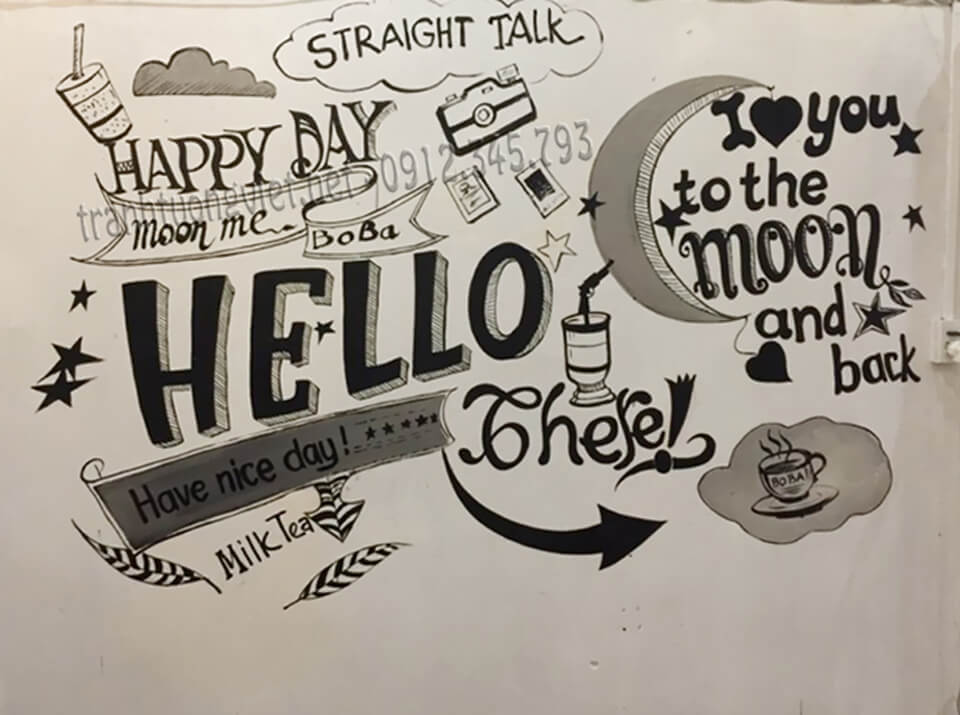 STRAIGHT TALK
HAPPY DAY
tranhtuongviet.net | 0912.345.793
moon me
BoBa
I you
to the
moon
and
back
HELLO
There!
Have nice day!
Milk Tea
BOBA!